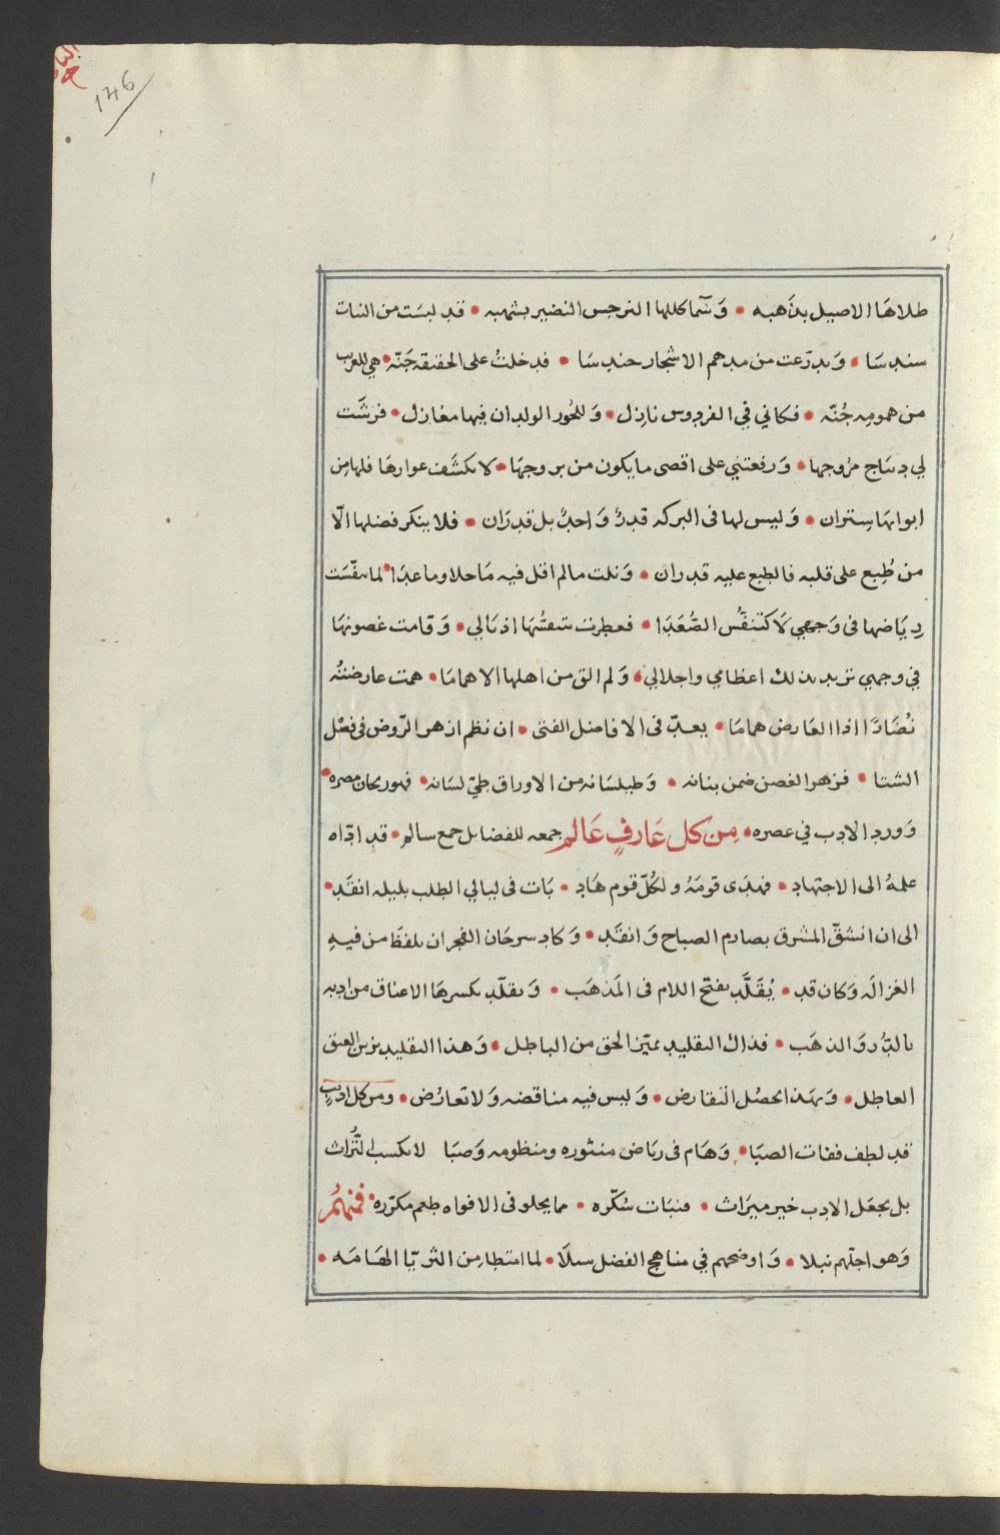 146
طلاهَا الاصيل بذَهبه • وَسَما كللها النرجس النضير بشهبه • قد لبسَت من النبات
سندسَا • وَتدرّعت من مدهم الاشجار حندسَا • فدخلتُ على الحقيقه جَنّه • هي للغريب
من همومه جُنّه • فكاني في الفردوس نازل • وَللحُور الولدان فيها مغازل • فرشَت
لي دبيَاج مرُوجها • وَرفعتني على اقصى ما يكون من بروجهَا • لا تكشَف عوارهَا فلها مِن
ابوابهَا سِتران • وَليس لها فى البركه قدرٌ وَاحدٌ بل قدرَان • فلا ينكر فضلها الّا
من طُبع على قلبه فالطبع عليه قد ران • وَنلت ما لم اقل فيه مَا حلا وما عدَا • لما نفّسَت
رِيَاضها فى وَجهي لَا كتنفّس الصُّعَدَا • فعطرت بنفسُهَا اذيَالي • وَقامت غصونهَا
في وجهي تريد بذلك اعظامي واجلالي • وَلم الق من اهلها الا همامَا • همت عارضتُه
نُضَارًا اذا العَارض همامَا • يعدّ فى الافاضل الفتى • ان نظم ازهر الرّوض فى فصْل
الشتا • فزهر الغصن ضمن بنانه • وَطيلسَانه من الاوراق طيّ لسَانه • فهو ريحان مصره •
وَورد الادب في عصره • مِن كل عَارفٍ عَالم جمعه للفضايل جمع سالم • قد ادّاه
علمهُ الى الاجتهاد • فهدَى قومَهُ ولكُلّ قوم هَاد • بَات فى ليالي الطلب بليله انقَد •
الى ان انشقّ المشرق بصارم الصباح وَانقَد • وَكاد سرحَان الفجر ان يلفظَ من فيهِ
الغزالَه وَكان قد • يُقَلَّد بفتح اللام فى المَذهَب • وَيقلّد بكسرهَا الاعناق من ادبه
بالدُّر وَالذهَب • فذاك التقليد يميّز الحق من الباطل • وَهذا التقليد يزين العنق
العاطِل • وَبهَذا يحصُل التقارض • وَليس فيه مناقضه وَلا تعارُض • ومن كل اديب
قد لطف نفات الصبَا • وَهَام فى ريَاض منثوره ومنظومه وَصبَا لا يكسب التُّراث
بل يجعَل الادب خير ميرَاث • منبَات سُكّره • مما يحلو فى الافواه طعم مكرّره • فمنهُم
وَهو اجلّهم نبلا • وَاوضحهم في مناهج الفضل سبلَا • لما امتطا من الثريّا الهَامَه •